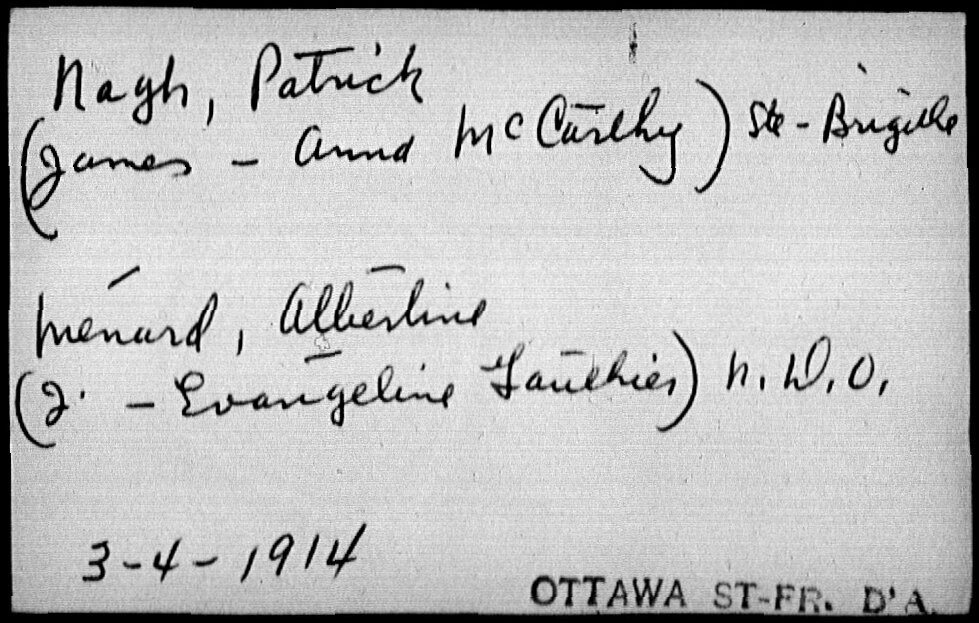 Nagh, Patrick
(James - Anna McCarthy) Ste-Brigitte
Ménard, Albertine
(J. - Evangeline Gauthier) N.D.O.
3-4-1914
OTTAWA ST-FR. D'A.